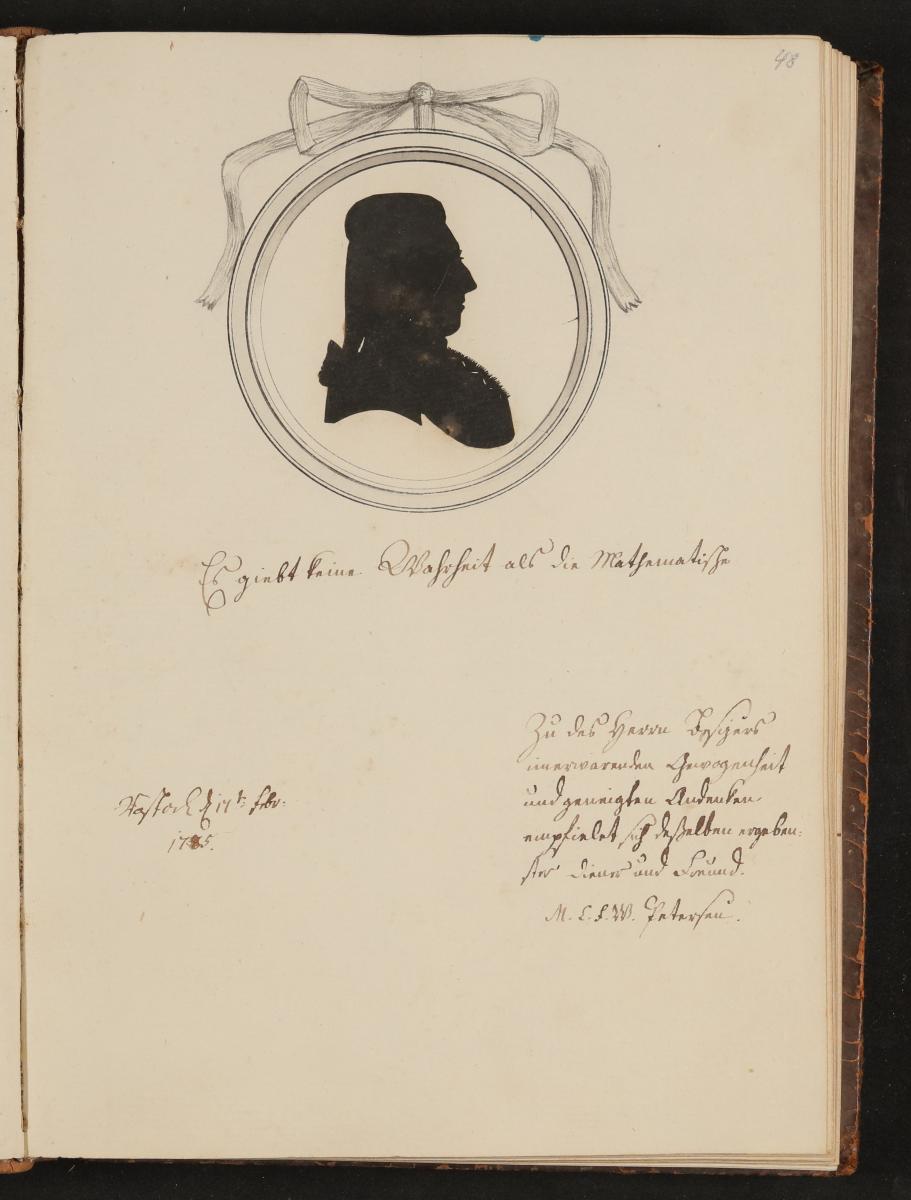 48
Es giebt keine Wahrheit als die Mathematische
Zu des Herrn Besizers
immerwärenden Gewogenheit
und geneigten Andenken
empfielet sich deßelben ergeben-
ster diener und Freund.
M. C. F. W. Petersen.
Rostock d 17t Febr:
1785.